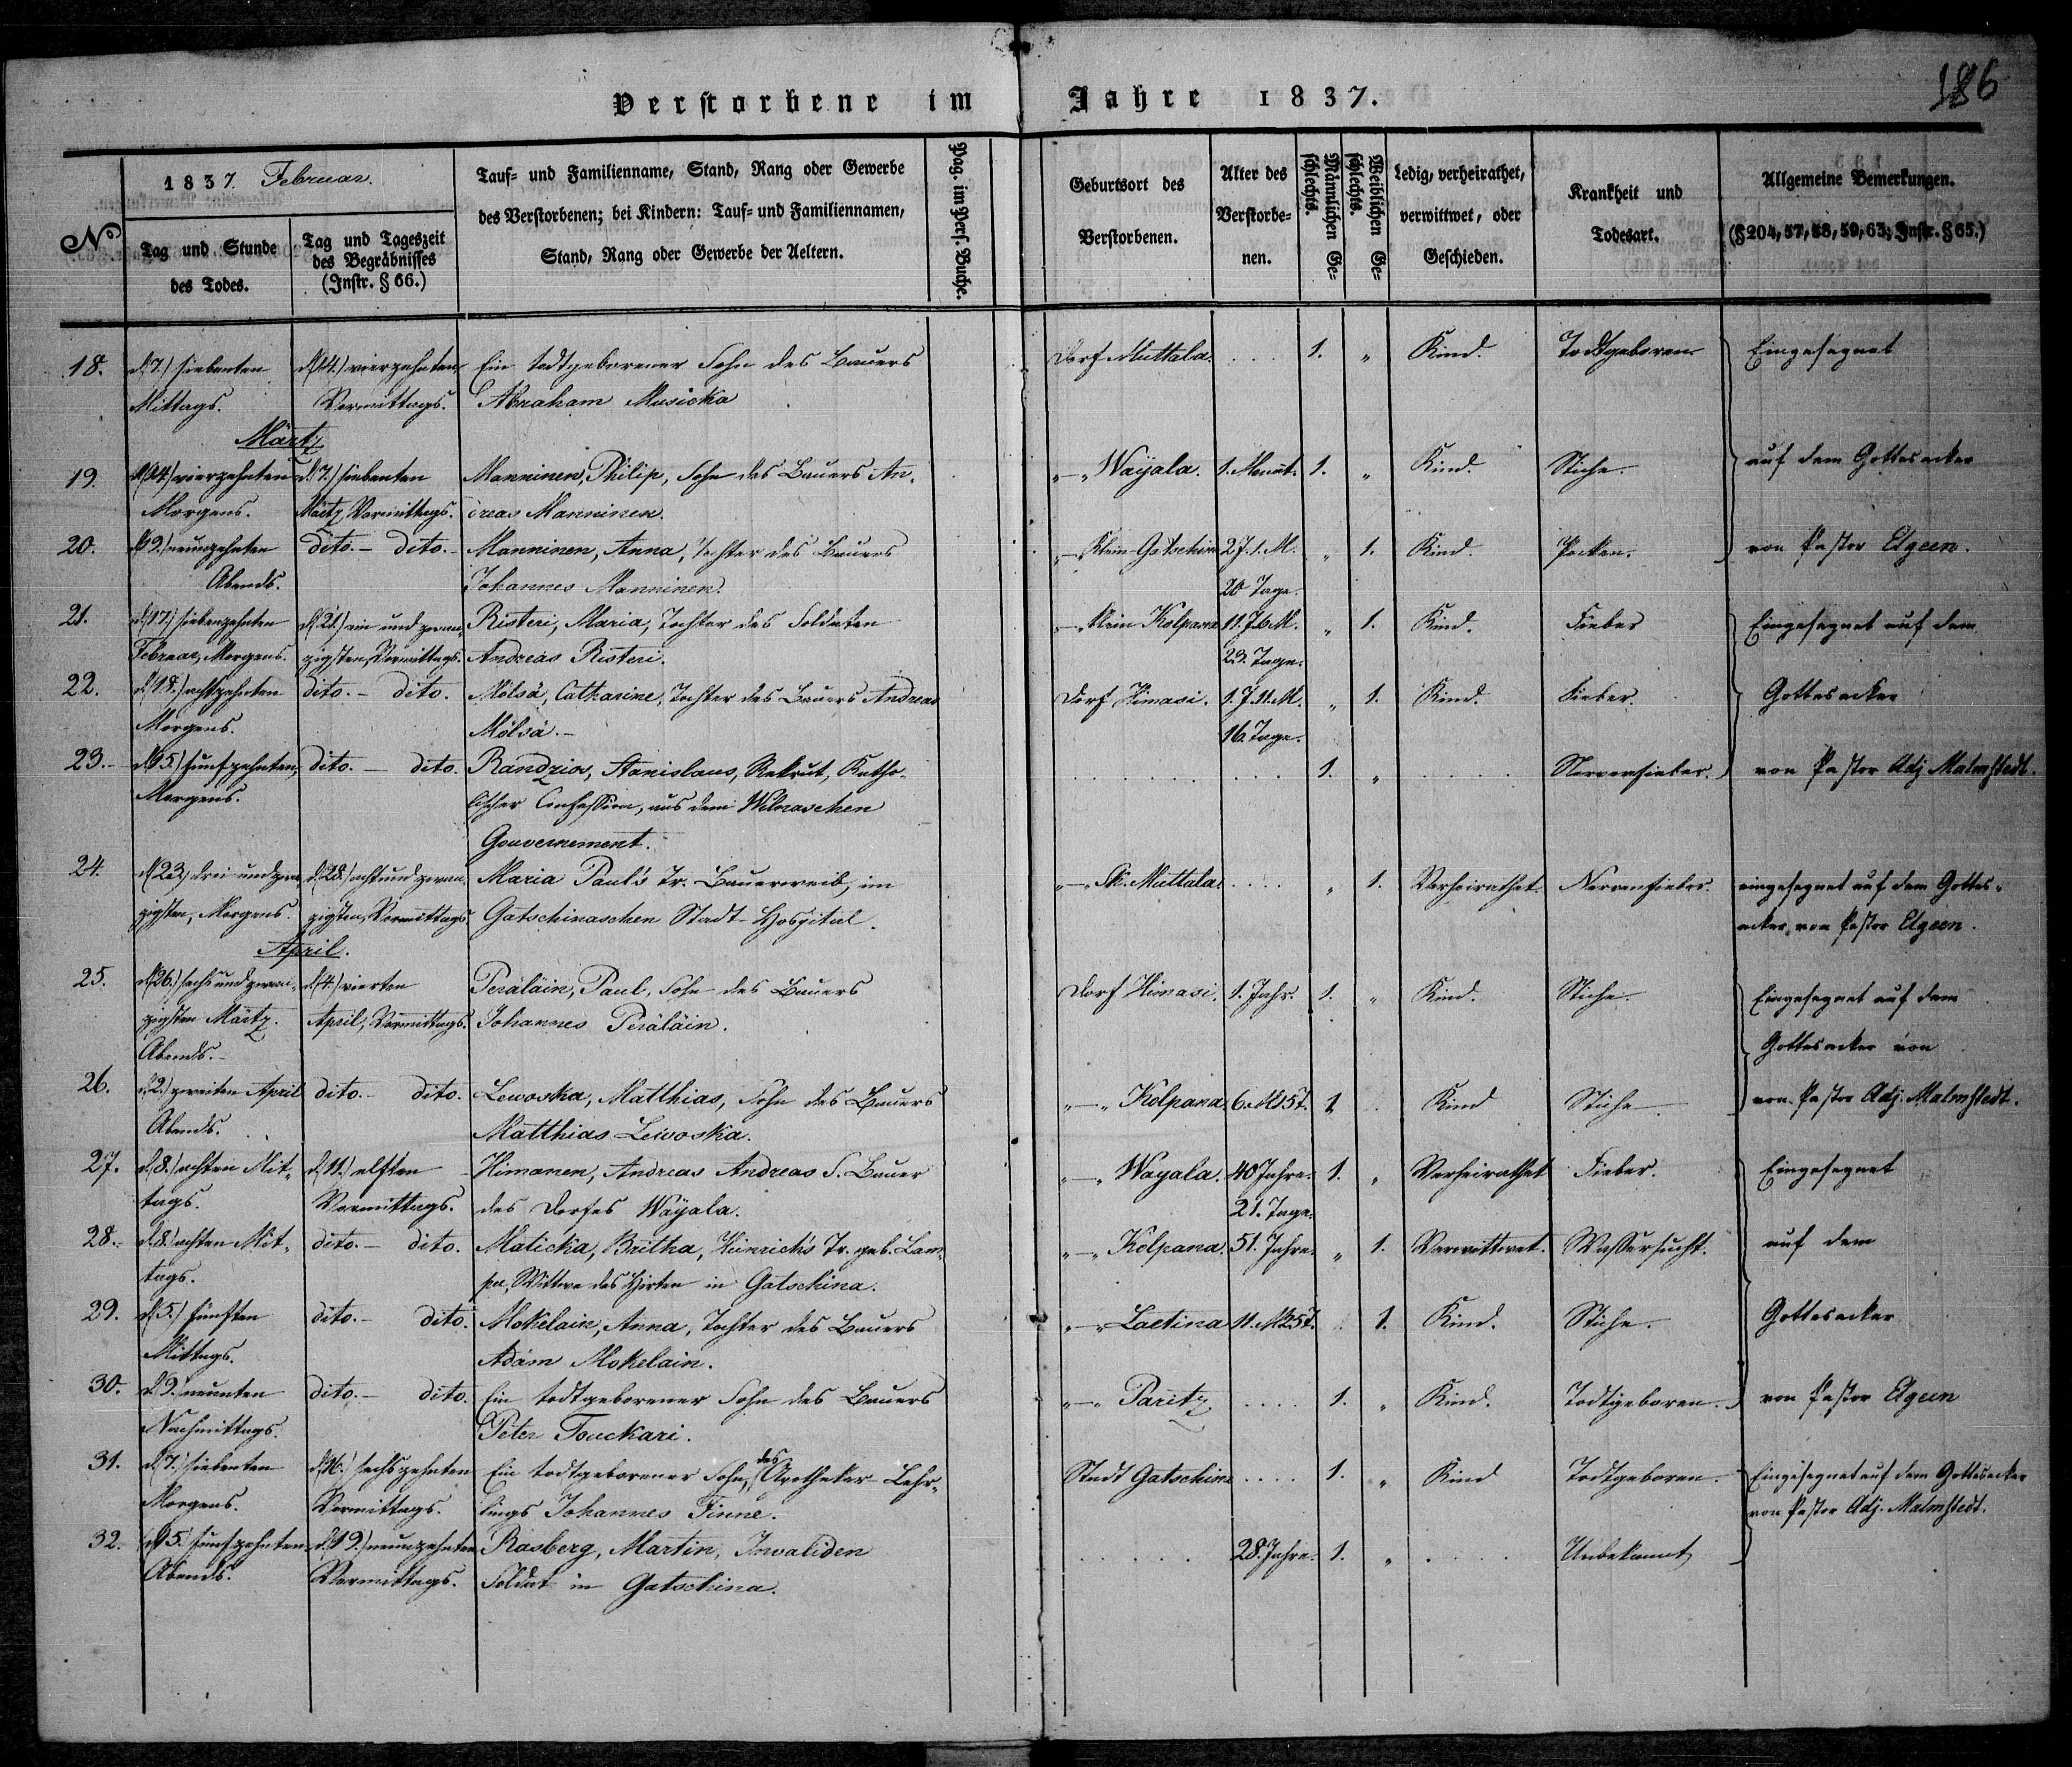 186
Verstorbene im Jahre 1837.
No
1837. Februar.
Tag und Stunde des Todes.
Tag und Tageszeit des Begräbnisses (Instr. § 66.)
Tauf- und Familienname, Stand, Rang oder Gewerbe
des Verstorbenen; bei Kindern: Tauf- und Familiennamen,
Stand, Rang oder Gewerbe der Aeltern.
Pag. im Pers. Buche.
Geburtsort des Verstorbenen.
Alter des Verstorbe-nen.
Männlichen Ge-schlechts.
Weiblichen Ge-schlechts.
Ledig, verheirathet, verwittwet, oder Geschieden.
Krankheit und Todesart.
Allgemeine Bemerkungen.
(§ 204, 57, 58, 59, 63; Instr. § 65.)
18. d. (7.) siebenten d. (14.) vierzehnten Ein todtgeborener Sohn des Bauers Dorf Muttala. .... 1. „ Kind. Todtgeboren Eingesegnet
Mittags. Vormittags. Abraham Musicka
Märtz
19. d. (14.) vierzehnten d. 7.) siebenten Manninen, Philip, Sohn des Bauers An- „—„ Wayala. 1. Monat. 1. „ Kind. Stiche. auf dem Gottesacker
Morgens. Märtz Vormittags. dreas Manninen.
20. d. 19.) neunzehnten dito. – dito. – Manninen, Anna, Tochter des Bauers „— Klein Gatschina 2 J. 1. M. „ 1. Kind. Pocken. von Pastor Elgeen.
Abends. Johannes Manninen. 20 Tage.
21. d. (17.) siebenzehnten d. (21.) ein und zwan- Risteri, Maria, Tochter des Soldaten „— Klein Kolpana 11. J. 6. M. „ 1. Kind. Fieber Eingesegnet auf dem
Februar, Morgens. zigsten, Vormittags. Andreas Risteri. 23. Tage.
22. d. 18.) achtzehnten dito. – dito. Mölsä, Catharine, Tochter des Bauers Andreas Dorf Himasi. 1. J. 11. M. „ 1. Kind. Fieber. Gottesacker
Morgens. Mölsä. – 16. Tage.
23. – d. 15.) funfzehnten, dito. – dito. Randzio, Stanislaus, Rekrut, Katho- .... .... 1. „ .... Nervenfieber. von Pastor Adj Malmstedt.
Morgens. lischer Confession, aus dem Wilnaschen
Gouvernement.
24. d. (23.) drei und zwan- d. (28.) acht und zwan- Maria Paul's Tr. Bauerweib, im „—„ Muttala. .... „ 1. Verheirathet Nervenfieber. eingesegnet auf dem Gottes-
zigsten, Morgens. zigsten, Vormittags Gatschinaschen Stadt-Hospital. acker, von Pastor Elgeen.
April.
25. d. (26.) sechs und zwan- d. (4.) vierten Peräläin, Paul, Sohn des Bauers Dorf Himasi. 1. Jahr. 1. „ Kind. Stiche. Eingesegnet auf dem
zigsten Märtz. April, Vormittags. Johannes Peräläin.
Abends. – Gottesacker von
26. d. 2.) zweiten April dito. – dito. Lewoska, Matthias, Sohn des Bauers „—„ Kolpana. 6. M. 15 T. 1 Kind Stiche von Pastor Adj. Malmstedt.
Abends. Matthias Lewoska.
27. d. (8.) achten Mit- d. (11.) elften Himanen, Andreas Andreas S. Bauer „—„ Wayala. 40 Jahre. 1. „ Verheirathet Fieber. Eingesegnet
tags. Vormittags. des Dorfes Wayala. 21. Tage.
28. – d. 8.) achten Mit- dito. – dito. Maticka, Britha, Heinrich's Tr. geb. Lam- „—„ Kolpana. 51. Jahre. „ 1. Verwittwet. Wassersucht. auf dem
tags. pa, Wittwe des Hirten in Gatschina.
29. d. (5.) fünften dito. – dito. Mokelain, Anna, Tochter des Bauers „—„ Laetina 11. M 25 T. 1. Kind. Stiche. Gottesacker
Mittags. Adam Mokelain.
30. d. 9.) neunten dito. – dito. Ein todtgeborener Sohn des Bauers „—„ Paritz. .... 1. „ Kind. Todtgeboren. von Pastor Elgeen
Nachmittags. Peter Touckari.
31. d. 7.) siebenten d. (16.) sechszehnten Ein todtgeborener Sohn, des Apotheker-Lehr- Stadt Gatschina .... 1. „ Kind Todtgeboren. Eingesegnet auf dem Gottesacker
Morgens. Vormittags. lings Johannes Finne. von Pastor Adj. Malmstedt.
32. d. 15.) funfzehnten d. 19.) neunzehnten Rasberg, Martin, Invaliden .... 28. Jahre. 1. „ .... Unbekannt
Abends. Vormittags. Soldat in Gatschina.